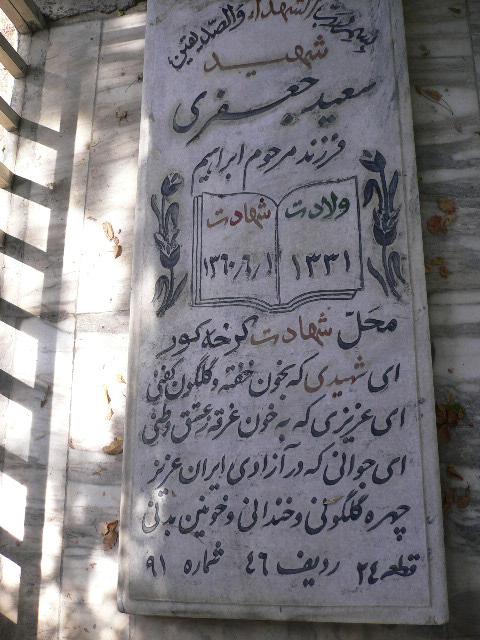 الشهداء والصدیقین
شهید
سعید جعفری
فرزند مرحوم ابراهیم
ولادت شهادت
۱۳۳۱ ۱۳۶۰/۶/۱
محل شهادت کرخه کور
ای شهیدی که بخون خفته و گلگون کفنی
ای عزیزی که به خون غرقه ز عشق وطنی
ای جوانی که در آزادی ایران عزیز
چهره گلگونی و خندانی و خونین بدنی
قطعه ۲۴ ردیف ۴۶ شماره ۹۱